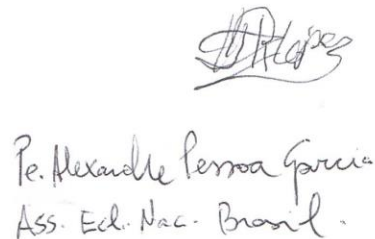 Pe. Alexandre Pessoa Garcia
Ass. Ecl. Nac. Brasil.